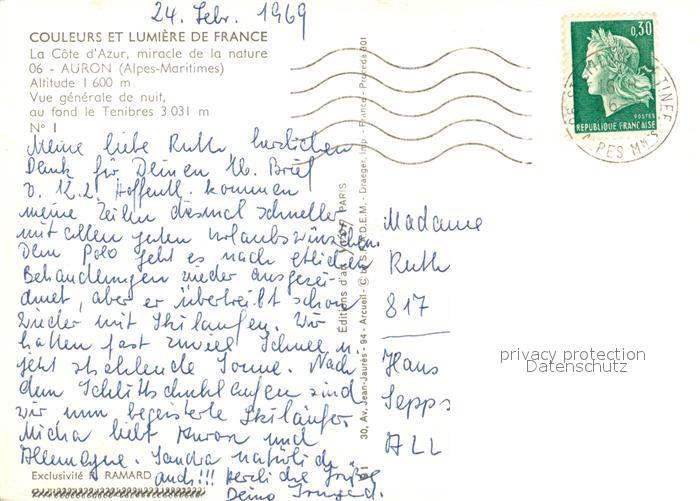 24. Febr. 1969
COULEURS ET LUMIÈRE DE FRANCE
La Côte d'Azur, miracle de la nature
06 - AURON (Alpes-Maritimes)
Altitude 1 600 m
Vue générale de nuit,
au fond le Tenibres 3 031 m
N° 1
Meine liebe Ruth herzlichen
Dank für Deinen lb. Brief
v. 12.2. Hoffentl. kommen
meine Zeilen diesmal schneller
mit allen guten Urlaubswünschen.
Dem Polo geht es nach etlichen
Behandlungen wieder ausgezei-
chnet, aber er übertreibt schon
wieder mit Skilaufen. Wir
hatten fast zuviel Schnee u.
jetzt strahlende Sonne. Nach
dem Schlittschuhlaufen sind
wir nun begeisterte Skiläufer.
Micha liebt Auron und
Allemagne. Sandra natürlich
auch!!! Herzliche Grüße
Deine
Exclusivité R. RAMARD
Éditions d'art YVON PARIS
30, Av. Jean-Jaurès - 94 - Arcueil - © by S.P.A.D.E.M. - Draeger, Imp. - France - Procédé 301
0,30
POSTES
RÉPUBLIQUE FRANÇAISE
TINÉE
ALPES MMES
Madame
Ruth
817
Haus
Sepps
ALL
privacy protection
Datenschutz